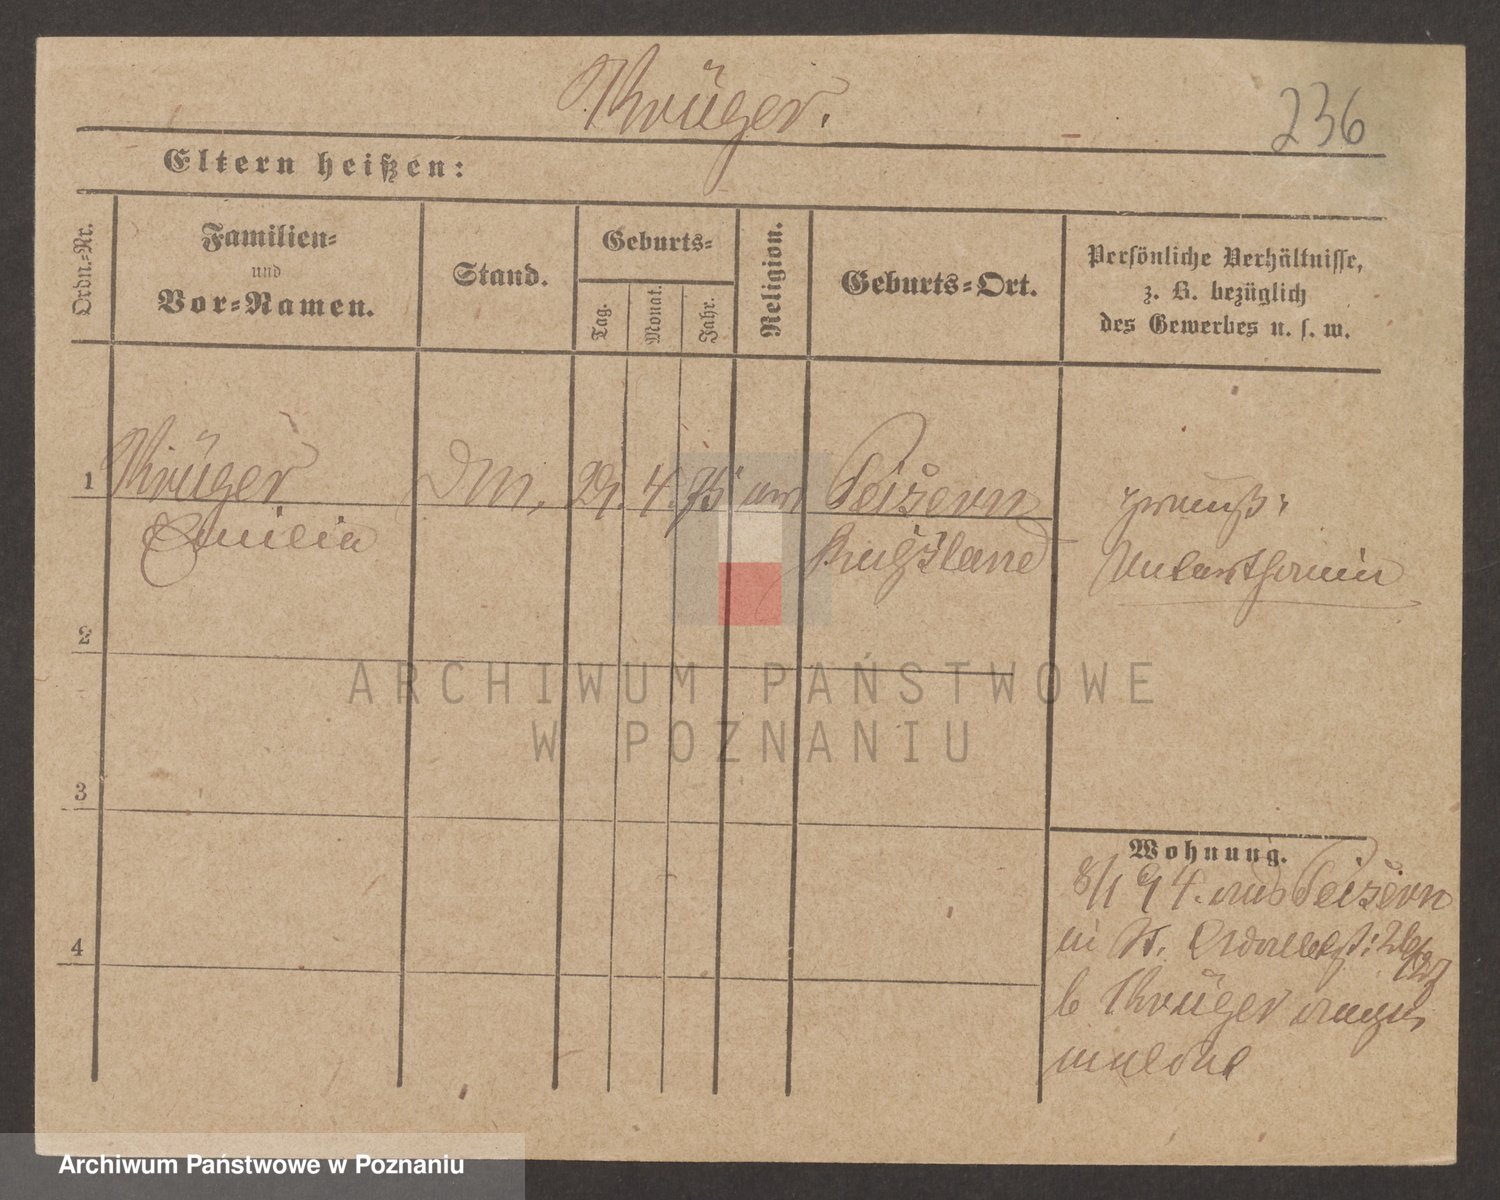 Krüger.
236
Eltern heißen:
Ordn.-Nr.
Familien-
und
Vor-Namen.
Stand.
Geburts-
Tag.
Monat.
Jahr.
Religion.
Geburts-Ort.
Persönliche Verhältnisse,
z. B. bezüglich
des Gewerbes u. s. w.
1 Krüger 29. 4. 75 Peisern
Emilia Rußland
preuß.
Unterthanin
2
3
4
Wohnung.
8/1 94. aus Peisern
in
b Krüger
ARCHIWUM PAŃSTWOWE
W POZNANIU
Archiwum Państwowe w Poznaniu